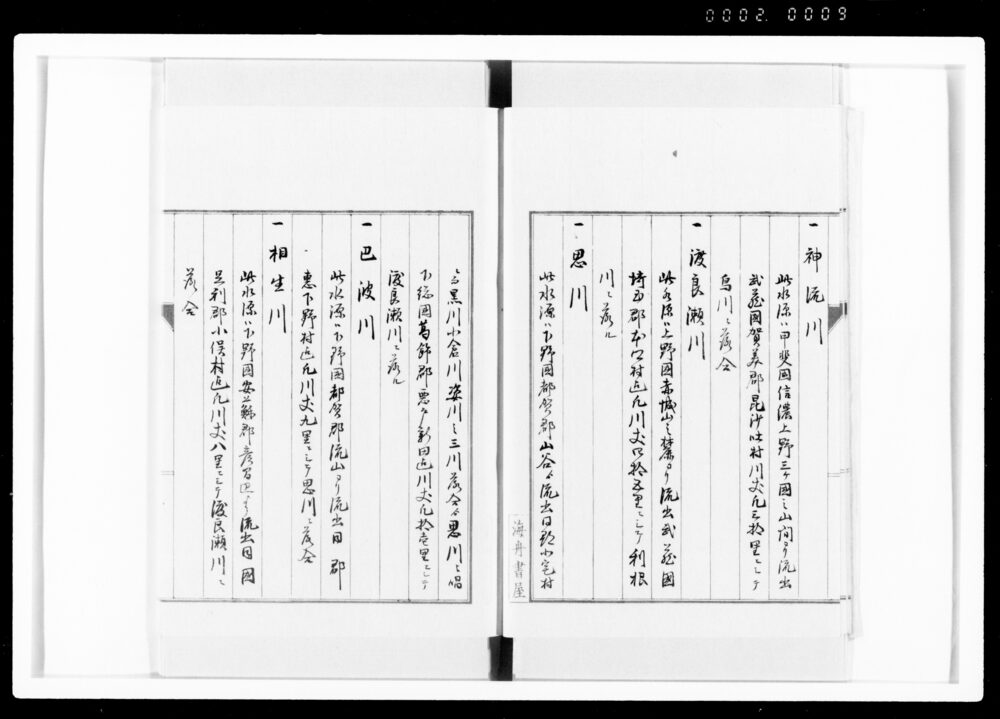 0002. 0009
一 神流川
此水源ハ甲斐國信濃上野三ヶ國之山間ヨリ流出
武蔵國賀美郡毘沙吐村川丈凡三拾里ニシテ
烏川ニ落合
一 渡良瀬川
此水源ハ上野國赤城山之麓ヨリ流出武蔵國
埼玉郡本口村迄凡川丈四拾五里ニシテ利根
川ニ落ル
一 思川
此水源ハ下野國都賀郡山谷ゟ流出同郡小宅村
ニ而黒川小倉川姿川之三川落合ゟ思川と唱
下総國葛飾郡悪戸新田迄川丈凡拾壱里ニシテ
渡良瀬川ニ落ル
一 巴波川
此水源ハ下野國都賀郡流山ヨリ流出同郡
恵下野村迄凡川丈九里ニシテ思川ニ落合
一 相生川
此水源ハ下野國安蘇郡彦間辺ゟ流出同國
足利郡小俣村迄凡川丈八里ニシテ渡良瀬川ニ
落合
海舟書屋